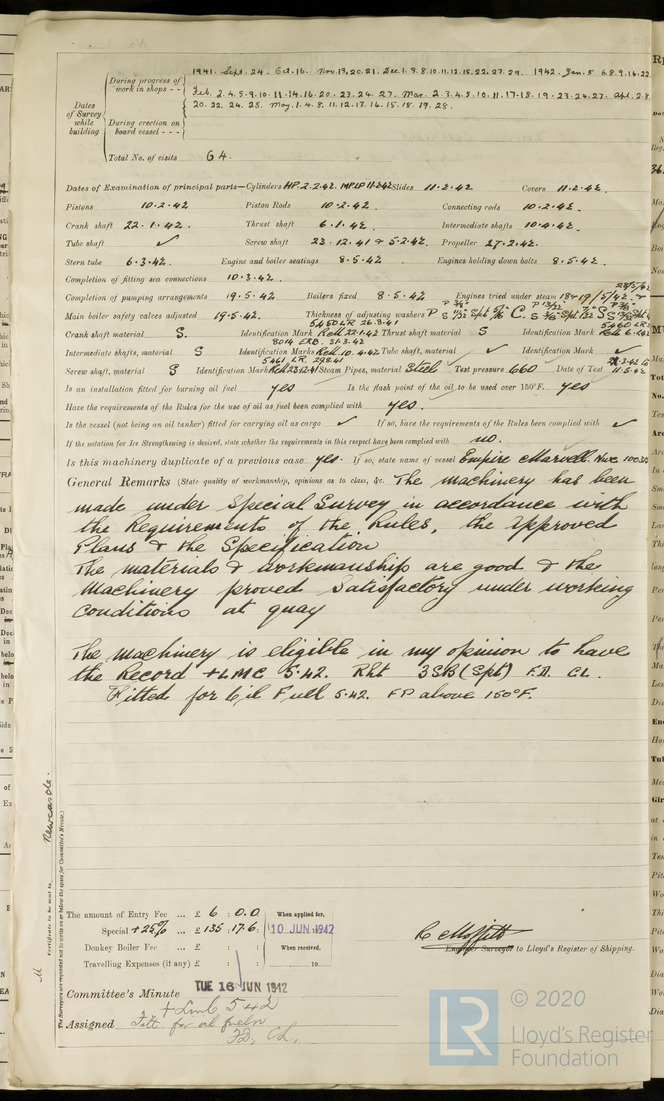 1941. Sept. 24. Oct. 16. Nov. 13, 20. 21. Dec. 1. 3. 8. 10. 11. 12. 15. 22. 27. 29. 1942. Jan. 5 6. 8. 9. 16. 22
During progress of work in shops - -
Feb. 2. 4. 5. 9. 10. 11. 14. 16. 20. 23. 24. 27. Mar. 2. 3. 4. 5. 10. 11. 17. 18. 19. 23. 24. 27. Apl. 2. 8.
Dates of Survey while building
20. 22. 24. 28. May. 1. 4. 8. 11. 12. 13. 16. 15. 18. 19. 28.
During erection on board vessel - - -
Total No. of visits 64.
Dates of Examination of principal parts—Cylinders HP. 2.2.42. MP LP 11.2.42 Slides 11.2.42 Covers 11.2.42.
Pistons 10.2.42 Piston Rods 10.2.42. Connecting rods 10.2.42.
Crank shaft 22.1.42. Thrust shaft 6.1.42. Intermediate shafts 10.4.42.
Tube shaft ✓ Screw shaft 23.12.41 & 5.2.42. Propeller 27.2.42.
Stern tube 6.3.42. Engine and boiler seatings 8.5.42. Engines holding down bolts 8.5.42.
Completion of fitting sea connections 10.3.42.
Completion of pumping arrangements 19.5.42 Boilers fixed 8.5.42 Engines tried under steam 18 & 19/5/42. &
Main boiler safety valves adjusted 19.5.42. Thickness of adjusting washers
5460 LR 26.3.41
Crank shaft material S. Identification Mark 22.1.42 Thrust shaft material S Identification Mark 6.1.42
8014 ERB. 31.3.42
Intermediate shafts, material S Identification Marks 10.4.42 Tube shaft, material ✓ Identification Mark ✓
5461 LR. 29.8.41
Screw shaft, material S Identification Mark 23.12.41 Steam Pipes, material Steel Test pressure 660 Date of Test 11.5.42
Is an installation fitted for burning oil fuel yes Is the flash point of the oil to be used over 150°F. yes
Have the requirements of the Rules for the use of oil as fuel been complied with yes.
Is the vessel (not being an oil tanker) fitted for carrying oil as cargo ✓ If so, have the requirements of the Rules been complied with ✓
If the notation for Ice Strengthening is desired, state whether the requirements in this respect have been complied with no.
Is this machinery duplicate of a previous case yes. If so, state name of vessel Empire Marvell. Nwc
General Remarks (State quality of workmanship, opinions as to class, &c. The machinery has been
made under Special Survey in accordance with
the Requirements of the Rules, the approved
Plans & the Specification
The materials & workmanship are good & the
Machinery proved satisfactory under working
conditions at quay
The machinery is eligible in my opinion to have
the Record +LMC 5.42. Rht 3SB (Spt) F.D. CL.
Fitted for Oil Fuel 5.42. FP above 150°F.
Certificate to be sent to Newcastle.
The Surveyors are requested not to write on or below the space for Committee's Minute.
The amount of Entry Fee ... £ 6 : 0.0. When applied for,
Special +25% ... £ 135 : 17.6 : 10 JUN 1942
Donkey Boiler Fee ... £ : : When received,
Travelling Expenses (if any) £ : : 19
R Moffitt
Engineer Surveyor to Lloyd's Register of Shipping.
Committee's Minute TUE 16 JUN 1942
+ Lmb 5 42
Assigned Fitt. for oil fuel
FD, CL.
LR
© 2020
Lloyd's Register
Foundation